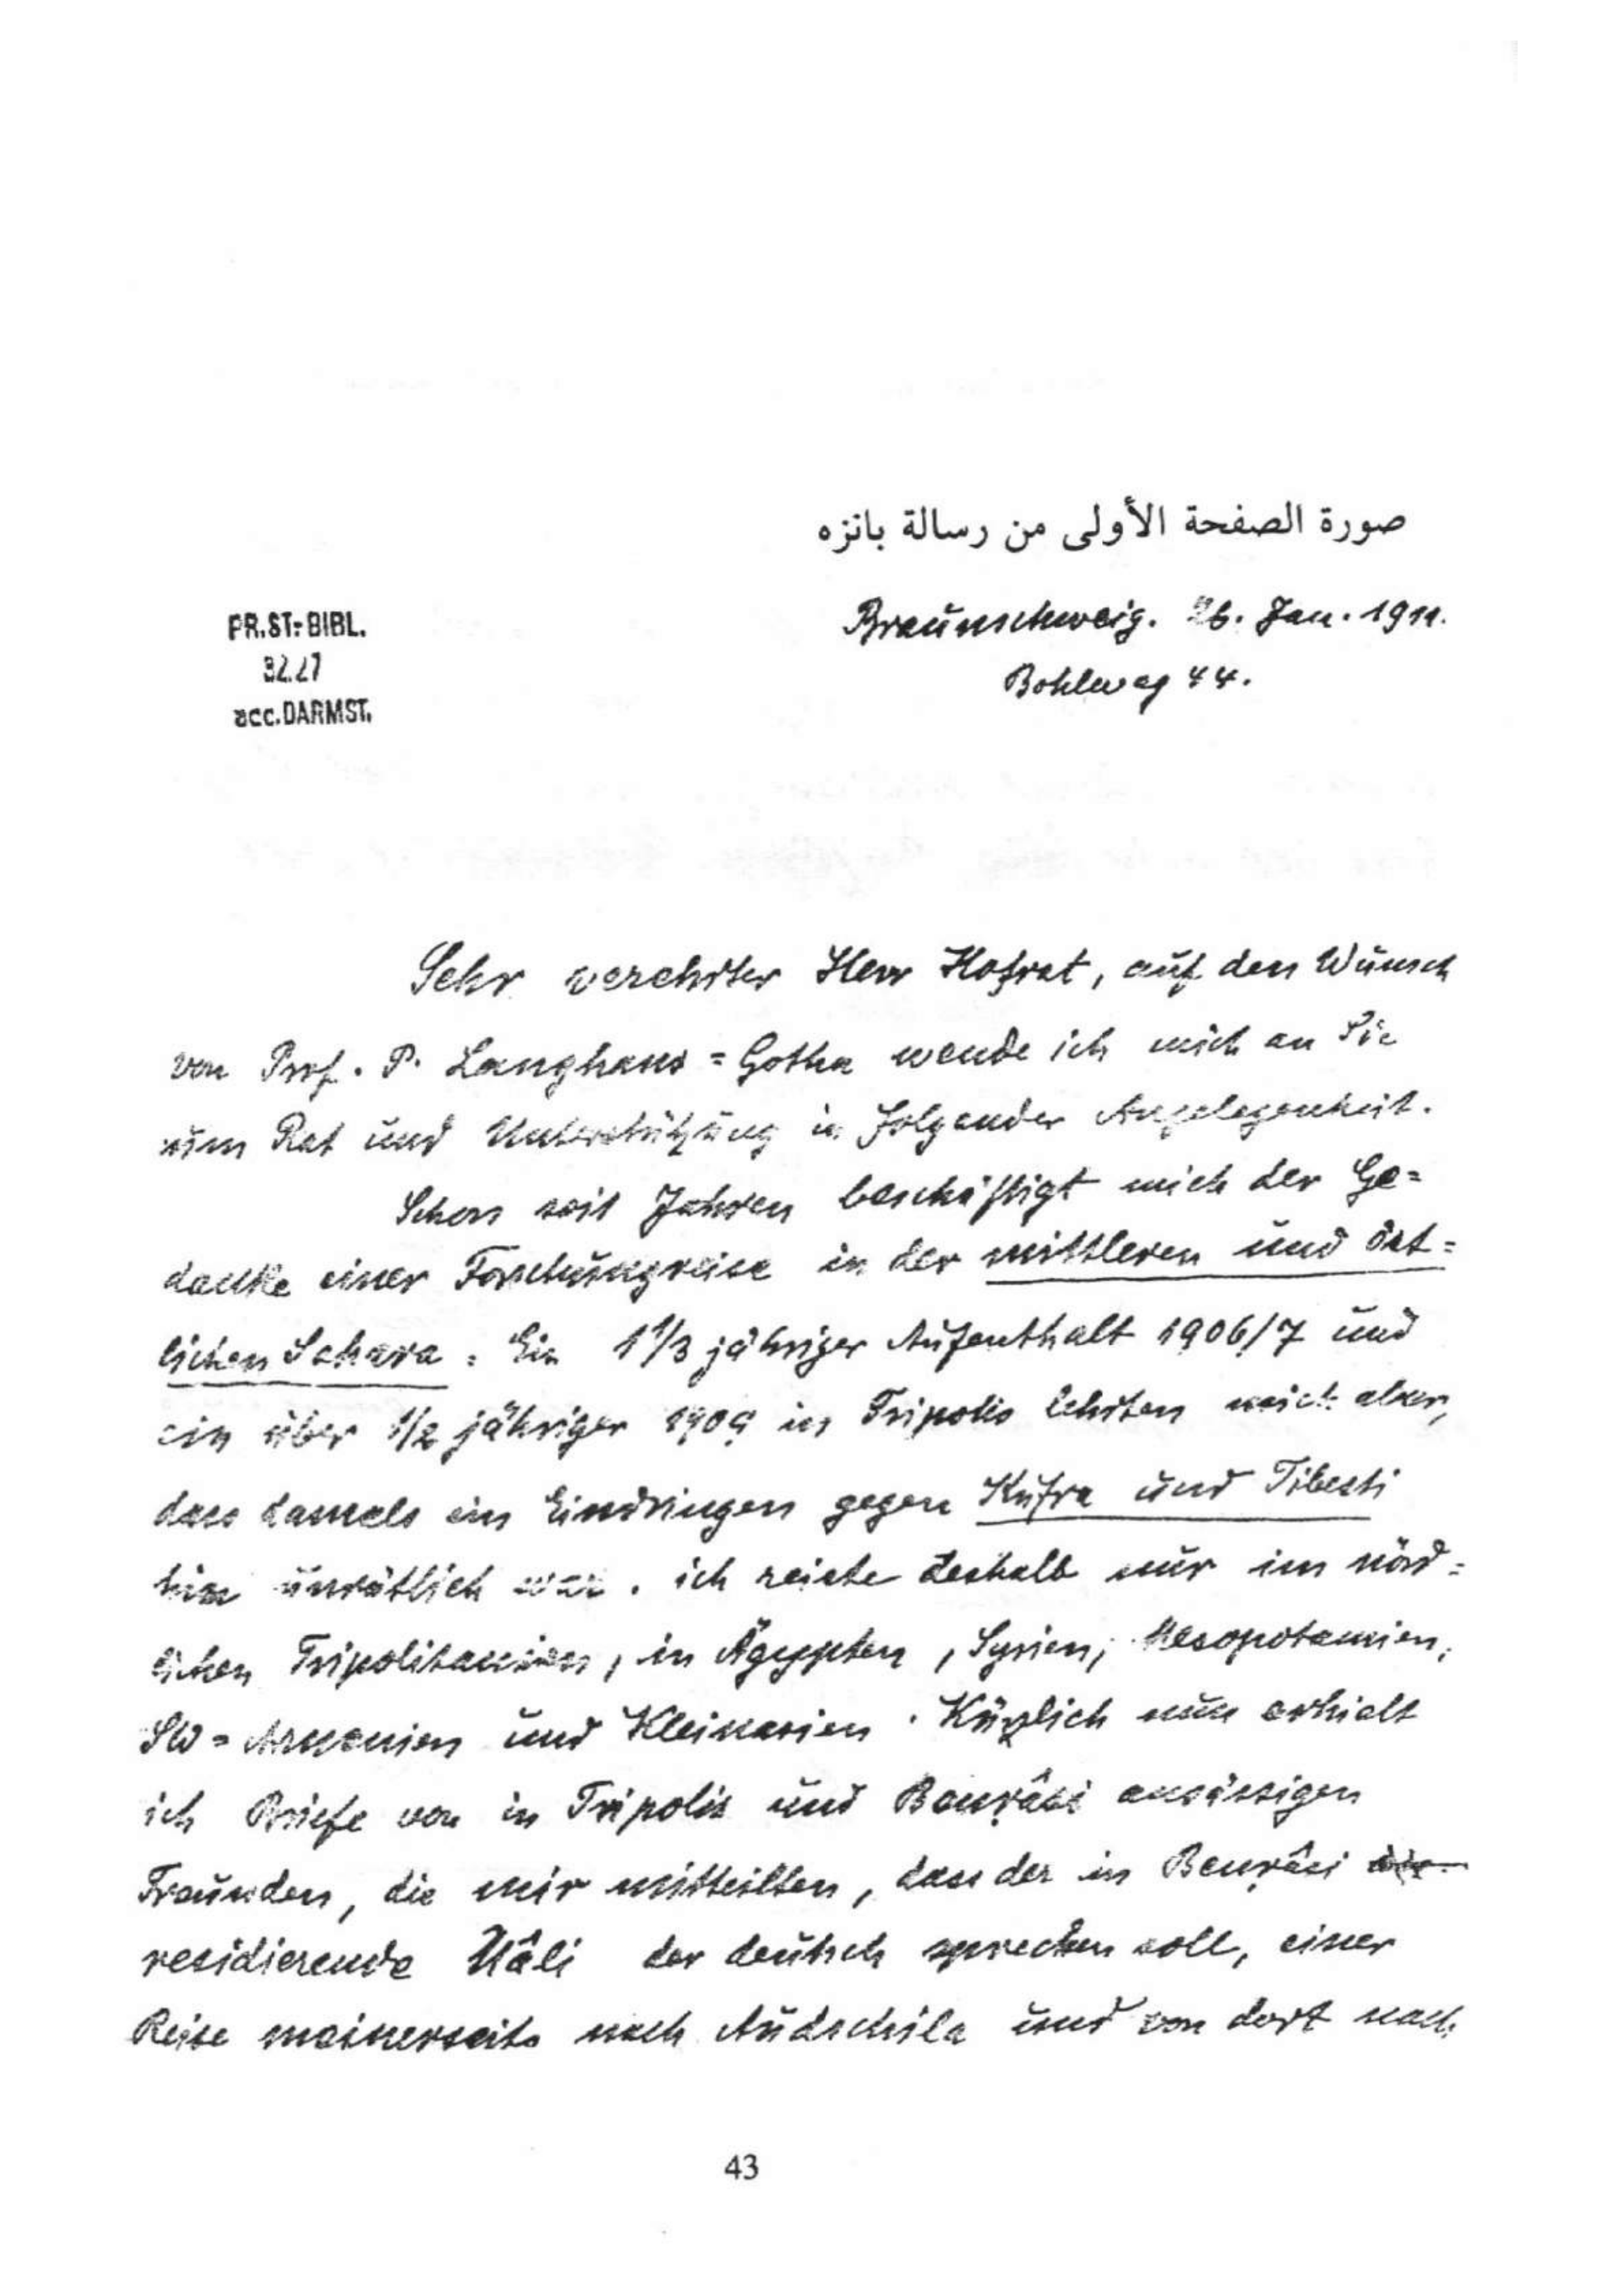 صورة الصفحة الأولى من رسالة بانزه
PR.ST.-BIBL.
32.27
acc.DARMST.
Braunschweig. 26. Jan. 1911.
Bohlweg 44.
Sehr verehrter Herr Hofrat, auf den Wunsch
von Prof. P. Langhans = Gotha wende ich mich an Sie
um Rat und Unterstützung in folgender Angelegenheit.
Schon seit Jahren beschäftigt mich der Ge=
danke einer Forschungsreise in der mittleren und öst=
lichen Sahara. Ein 1 1/3 jähriger Aufenthalt 1906/7 und
ein über 1/2 jähriger 1909 in Tripolis lehrten mich aber,
dass damals ein Eindringen gegen Kufra und Tibesti
hin unrätlich war. ich reiste deshalb nur im nörd=
lichen Tripolitanien, in Ägypten, Syrien, Mesopotamien,
SW = Armenien und Kleinasien. Kürzlich nun erhielt
ich Briefe von in Tripolis und Benrâsi ansässigen
Freunden, die mir mitteilten, dass der in Benrâsi
residierende Uâli der deutsch sprechen soll, einer
Reise meinerseits nach Audschila und von dort nach
43